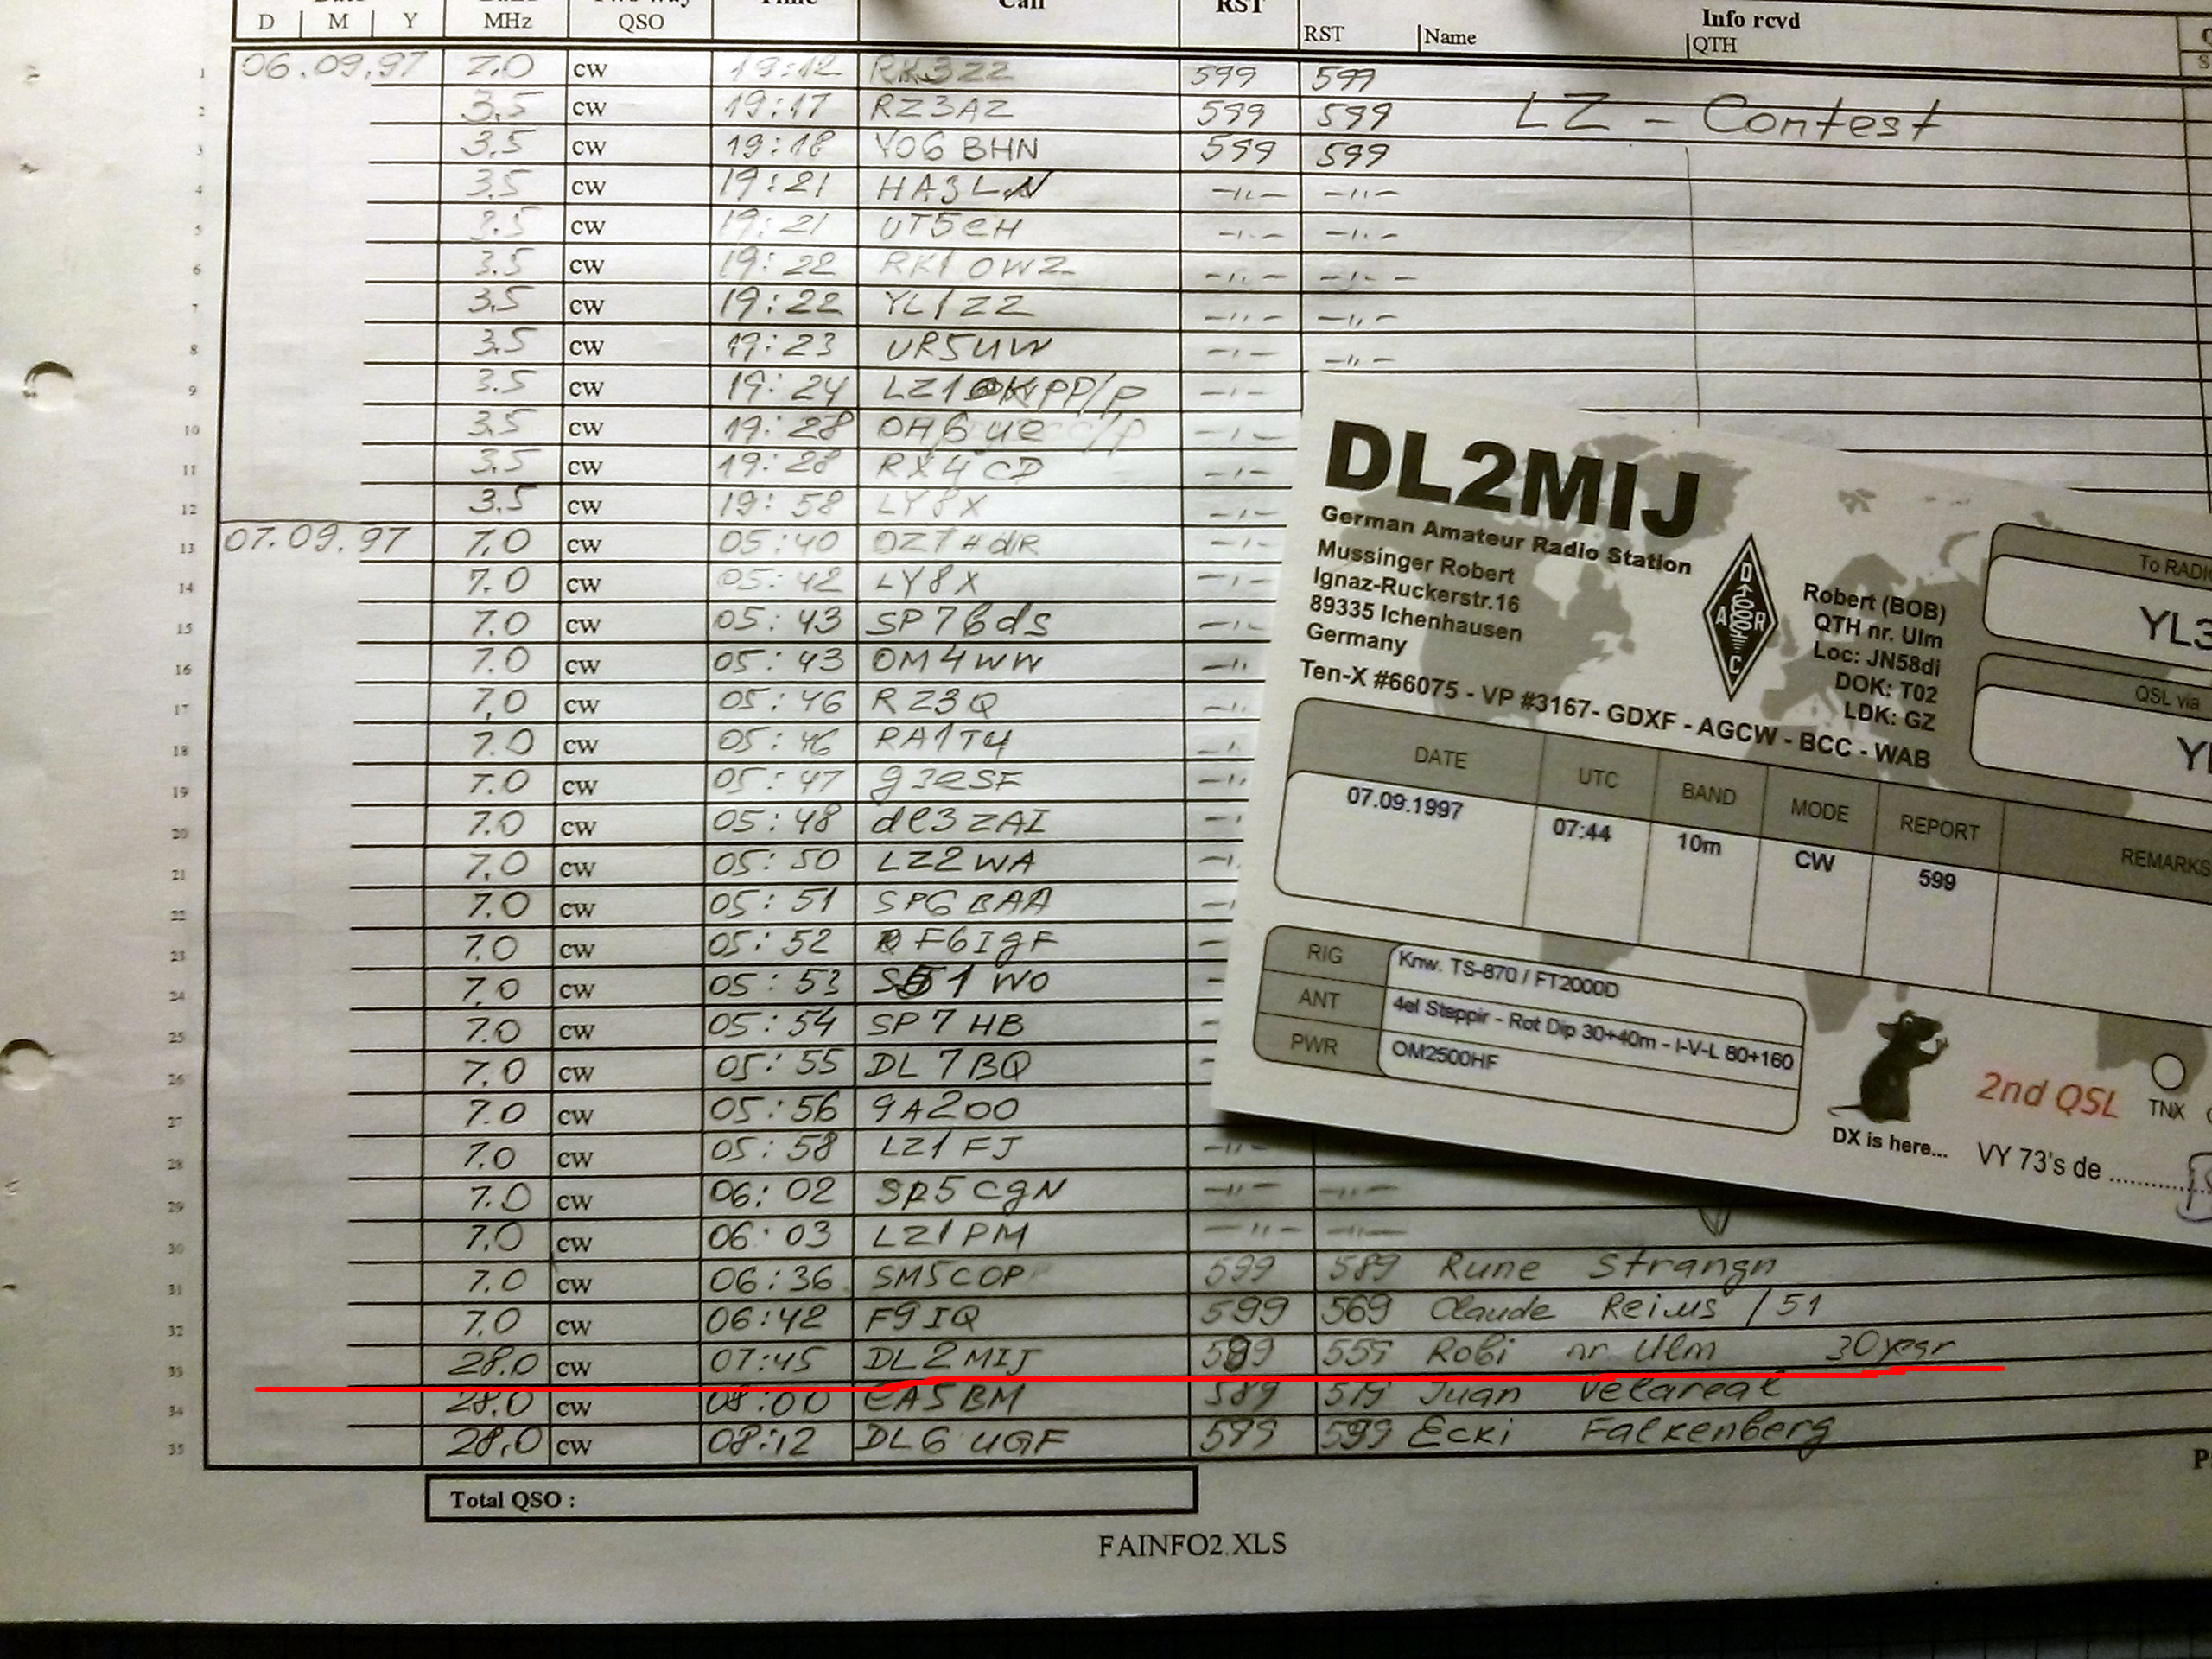 D M Y MHz QSO Time Call RST Info rcvd
RST Name QTH
1 06.09.97 7.0 cw 19:12 RK3ZZ 599 599
2 3.5 cw 19:17 RZ3AZ 599 599 LZ - Contest
3 3.5 cw 19:18 YO6BHN 599 599
4 3.5 cw 19:21 HA3LN -"- -"-
5 3.5 cw 19:21 UT5eH -"- -"-
6 3.5 cw 19:22 RK1OWZ -"- -"-
7 3.5 cw 19:22 YL1ZZ -"- -"-
8 3.5 cw 19:23 UR5UW -"- -"-
9 3.5 cw 19:24 -"-
10 3.5 cw 19:28 -"-
11 3.5 cw 19:28 RX4CD -"-
12 3.5 cw 19:58 LY8X -"-
13 07.09.97 7.0 cw 05:40 -"-
14 7.0 cw 05:42 LY8X -"-
15 7.0 cw 05:43 SP76ds -"-
16 7.0 cw 05:43 OM4WW
17 7.0 cw 05:46 RZ3Q
18 7.0 cw 05:46 RA1T4
19 7.0 cw 05:47 g3eSF
20 7.0 cw 05:48 dl3ZAI
21 7.0 cw 05:50 LZ2WA
22 7.0 cw 05:51 SP6BAA
23 7.0 cw 05:52
24 7.0 cw 05:53
25 7.0 cw 05:54 SP7HB
26 7.0 cw 05:55 DL7BQ
27 7.0 cw 05:56 9A200
28 7.0 cw 05:58 LZ1FJ -"-
29 7.0 cw 06:02 SP5CgN -"- -"-
30 7.0 cw 06:03 LZ1PM -"- -"-
31 7.0 cw 06:36 SM5COP 599 589 Rune Strangn
32 7.0 cw 06:42 F9IQ 599 569 Claude Reims /51
33 28.0 cw 07:45 DL2MIJ 599 559 Robi nr. Ulm 30year
34 28.0 cw 08:00 eA5BM 589 519 Juan Velareal
35 28.0 cw 08:12 DL6UGF 599 599 Ecki Falkenberg
Total QSO :
FAINFO2.XLS
DL2MIJ
German Amateur Radio Station
Mussinger Robert
Ignaz-Ruckerstr.16
89335 Ichenhausen
Germany
Ten-X #66075 - VP #3167- GDXF - AGCW - BCC - WAB
D A R C
Robert (BOB)
QTH nr. Ulm
Loc: JN58di
DOK: T02
LDK: GZ
To RADI
YL3
QSL via
DATE UTC BAND MODE REPORT REMARKS
07.09.1997 07:44 10m CW 599
RIG Knw. TS-870 / FT2000D
ANT 4el Steppir - Rot Dip 30+40m - I-V-L 80+160
PWR OM2500HF
DX is here...
2nd QSL
TNX
VY 73's de ..........